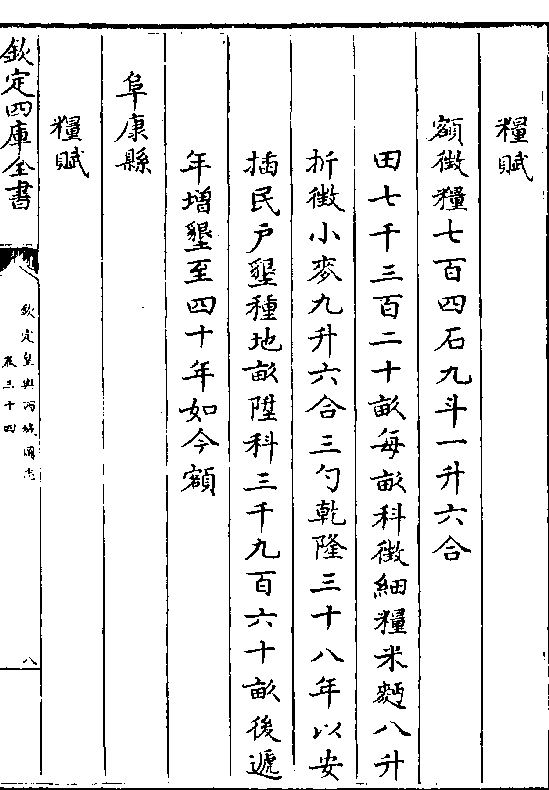 糧賦
額徴糧七百四石九斗一升六合
田七千三百二十畝每畝科徴細糧米麪八升
折徴小麥九升六合三勺乾隆三十八年以安
揷民戶墾種地畝陞科三千九百六十畝後遞
年增墾至四十年如今額
阜康縣
糧賦
欽定四庫全書
欽定皇輿西域圖志
卷三十四
八